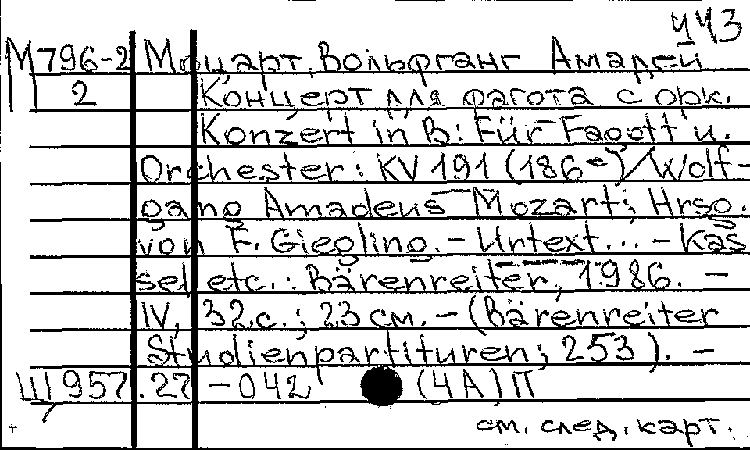 443
М796-2 Моцарт, Вольфганг Амадей
2 Концерт для фагота с орк.
Konzert in B: Für Fagott u.
Orchester: KV 191 (186e)/Wolf-
gang Amadeus Mozart; Hrsg.
von F. Giegling. - Urtext... - Kas
sel etc.: Bärenreiter, 1986. -
IV, 32 с.; 23 см. - (Bärenreiter
Studienpartituren; 253). -
Ш 957.27 - 042 (4А)П
см. след. карт.